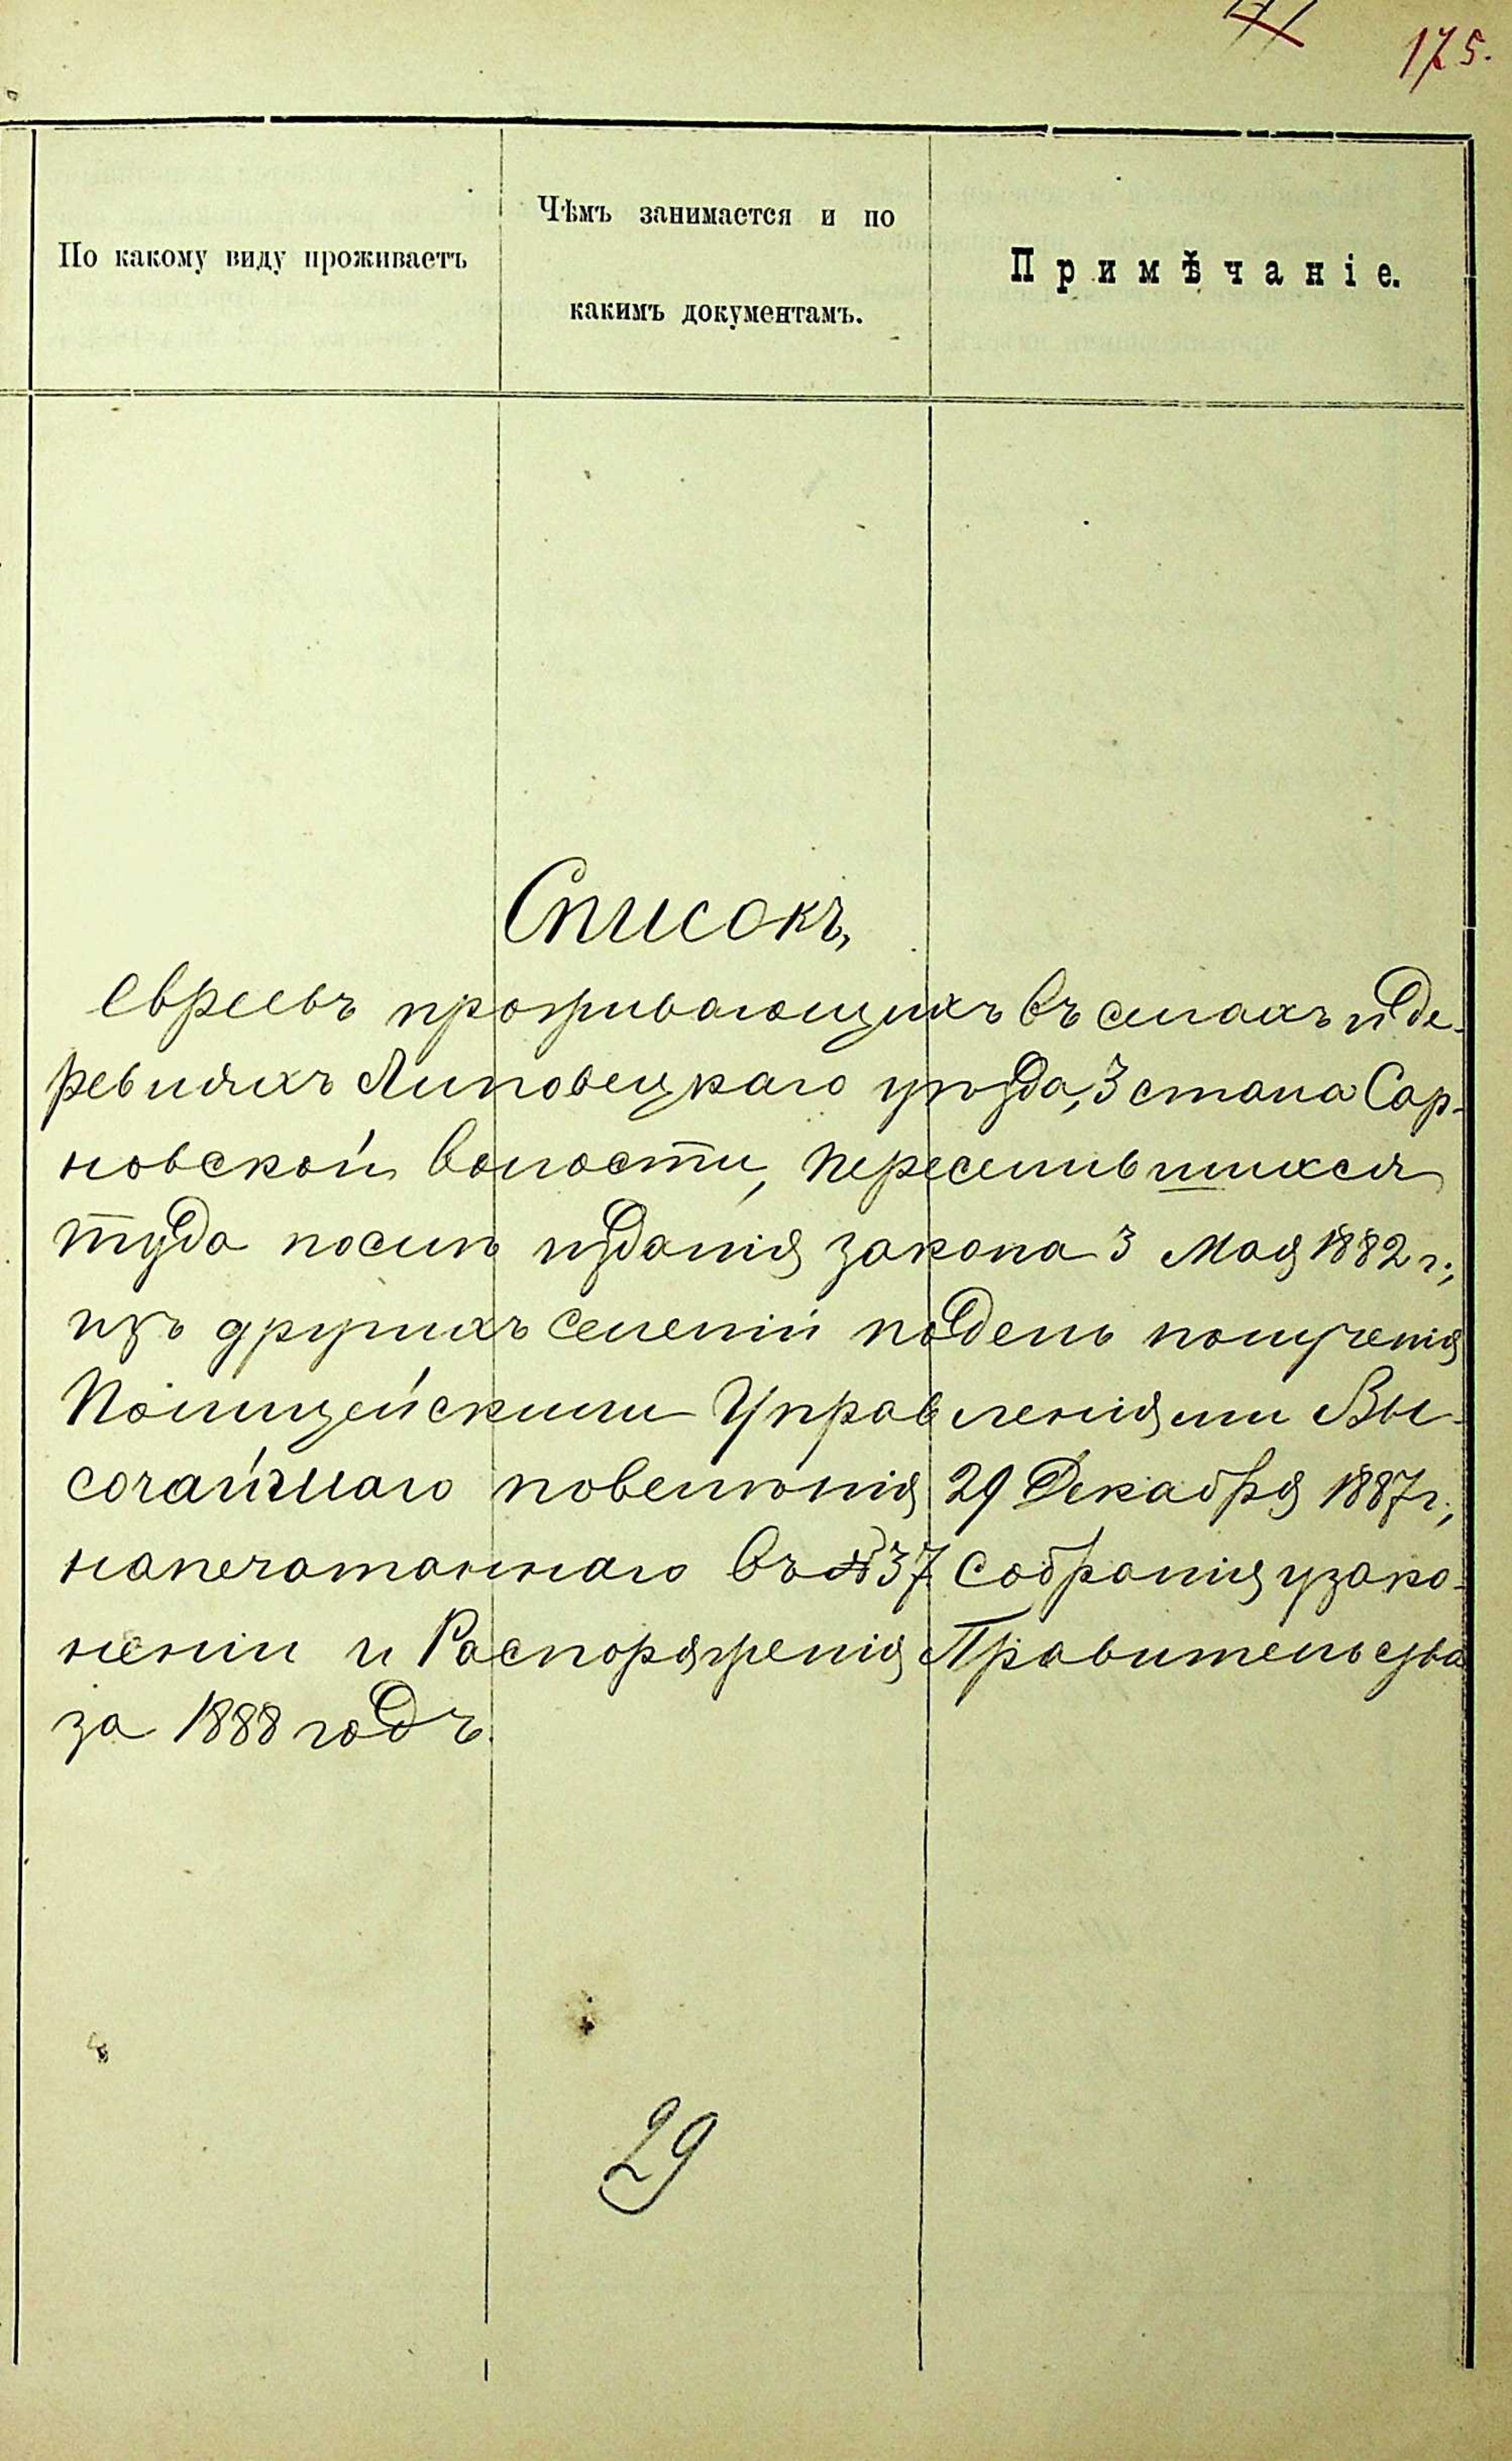 175.
По какому виду проживаетъ
Чѣмъ занимается и по
какимъ документамъ.
Примѣчаніе.
Списокъ,
евреевъ проживающихъ въ селахъ и де-
ревняхъ Липовецкаго уѣзда, 3 стана Сар-
новской волости, переселившихся
туда послѣ изданія закона 3 Мая 1882 г.,
изъ другихъ селеній по день полученія
Полицейскими Управленіями Вы-
сочайшаго повелѣнія 29 Декабря 1887 г.,
напечатаннаго въ № 37 Собранія узако-
неніи и Распоряженія Правительства
за 1888 годъ.
29